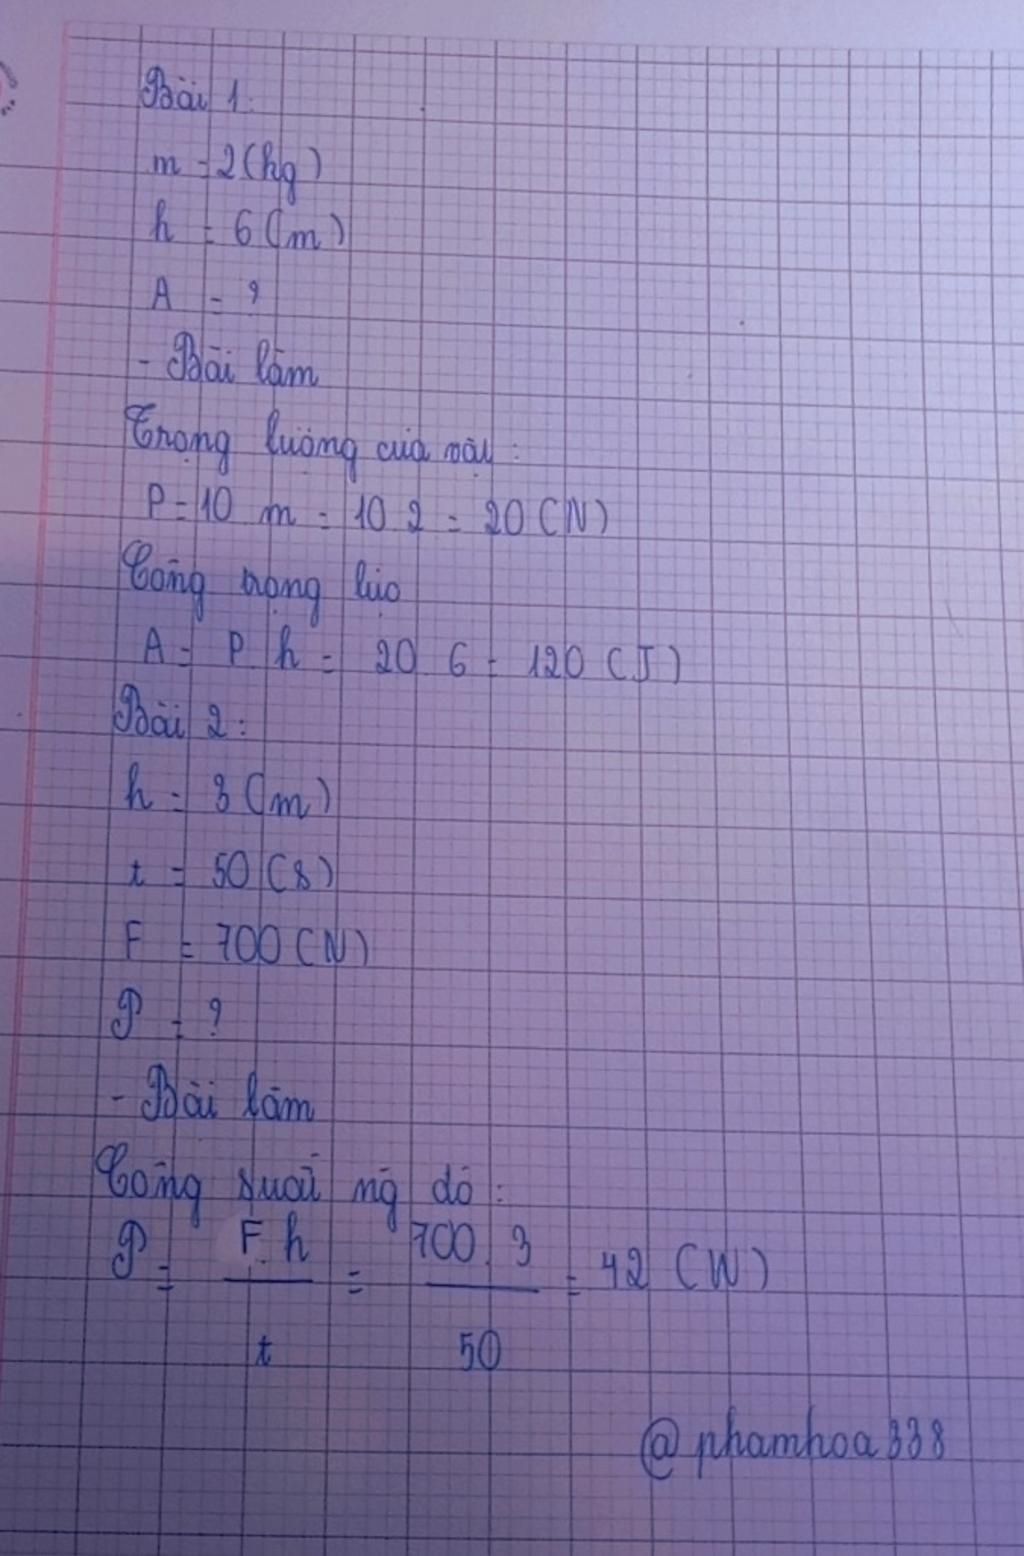 Bài 1:
m = 2 (kg)
h = 6 (m)
A = ?
- Bài làm
Trọng lượng của vật:
P = 10 m = 10 2 = 20 (N)
Công trọng lực
A = P h = 20 6 = 120 (J)
Bài 2:
h = 3 (m)
t = 50 (s)
F = 700 (N)
𝒫 = ?
- Bài làm
Công suất ng đó:
𝒫 = F.h / t = 700.3 / 50 = 42 (W)
@phamhoa338